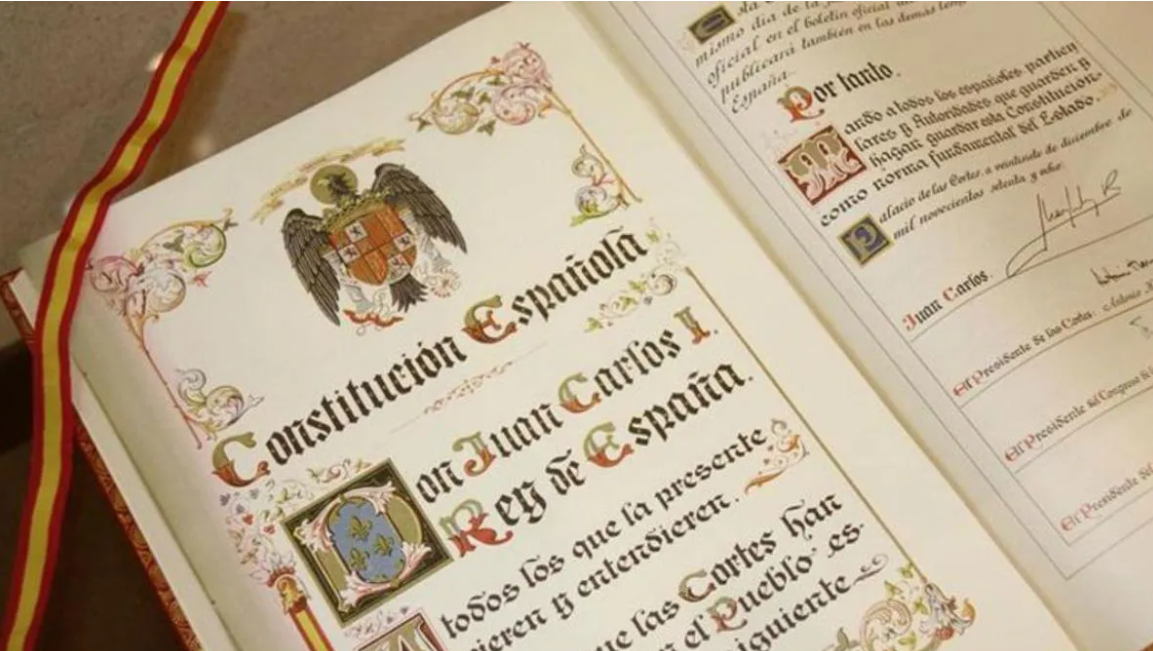 Constitución Española
Don Juan Carlos I.
Rey de España.
todos los que la presente
vieren y entendieren.
que las Cortes han
el Pueblo es-
siguiente
mismo día de la
oficial en el boletín oficial
publicará también en las demás
España.
Por tanto.
Mando a todos los españoles, particu
lares y Autoridades que guarden y
hagan guardar esta Constitución
como norma fundamental del Estado.
Palacio de las Cortes, a veintisiete de diciembre de
mil novecientos setenta y ocho.
Juan Carlos.
El Presidente de las Cortes.
El Presidente del Congreso
El Presidente del